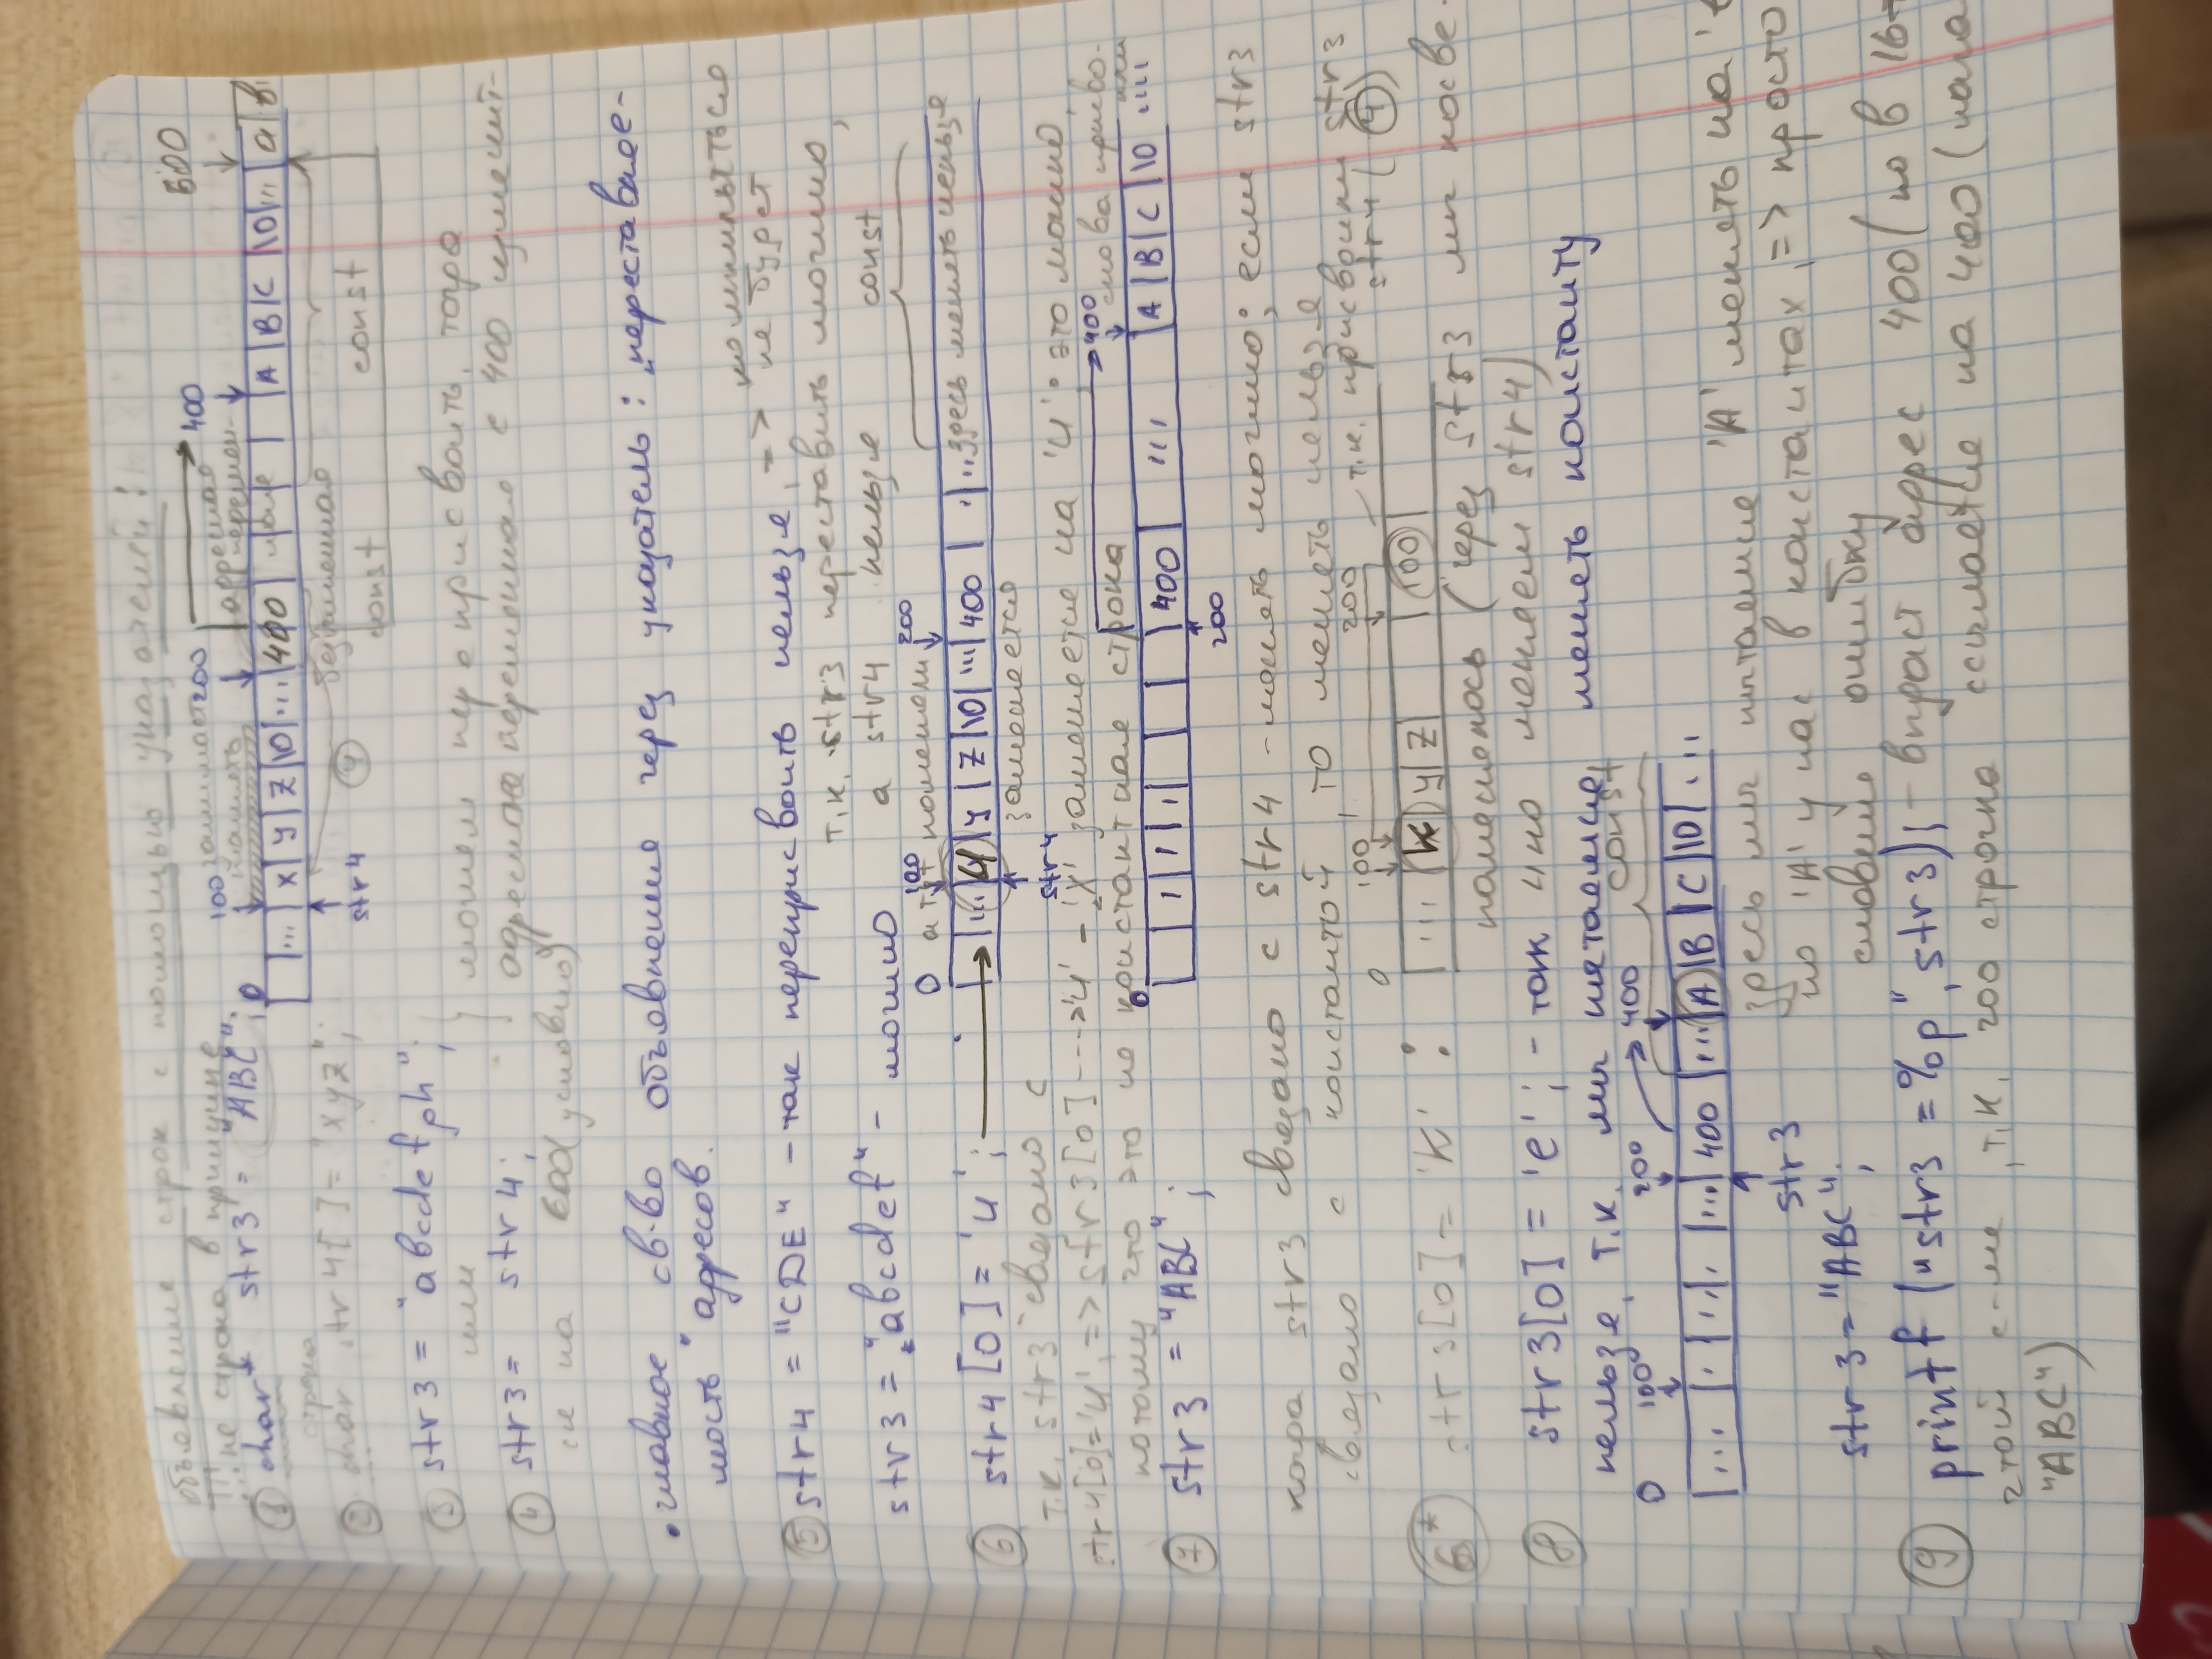 объявление строк с помощью указателей:
!!! не строка в принципе
① char* str3 = "ABC";
0 100 занимает память 200 адресная перемен- 400 600
... x y z \0 ... 400 A B C \0 ... a b
str4 ④ безымянная const const
строка
② char str4[] = "xyz";
③ str3 = "abcdefgh";
или
можем переприсвоить, тогда
④ str3 = str4;
адресная переменная с 400 изменит-
ся на 600 (условно)
• главное св-во объявления через указатель: "переставляе-
мость" адресов.
⑤ str4 = "CDE" - так переприсвоить нельзя, => компилиться
не будет
т.к. str3 переставить можно,
а str4 нельзя
str3 = "abcdef" - можно
const
0 а тут поменяли 100 200
⑥ str4[0] = 'u';
... u y z \0 ... 400 .. здесь менять нельзя
str4 заменяется
т.к. str3 связано с
str4[0]='u', => str3[0] ---> 'u' - 'x' заменяется на 'u'; это можно,
потому что это не константная строка
0 400 снова присво-
или
⑦ str3 = "ABC";
400 ... A B C \0 ....
200
когда str3 связано с str4 - менять можно; если str3
связано с константой, то менять нельзя
0 100 200 т.к. присвоили str3
str4 (④)
⑥* str3[0] = 'k' :
... k y z 100
поменялось (через str3 мы косве-
нно меняем str4)
⑧ str3[0] = 'e'; - так
нельзя, т.к. мы пытаемся менять константу
0 100 200 400 const
... 400 ... A B C \0 ...
str3
здесь мы пытаемся 'A' менять на 'e
но 'A' у нас в константах, => просто
словим ошибку
str3 = "ABC";
⑨ printf ("str3 = %p", str3); - выдаст адрес 400 (но в 16-
чтой с-ме, т.к. 200 строчка ссылается на 400 (нача
"ABC")